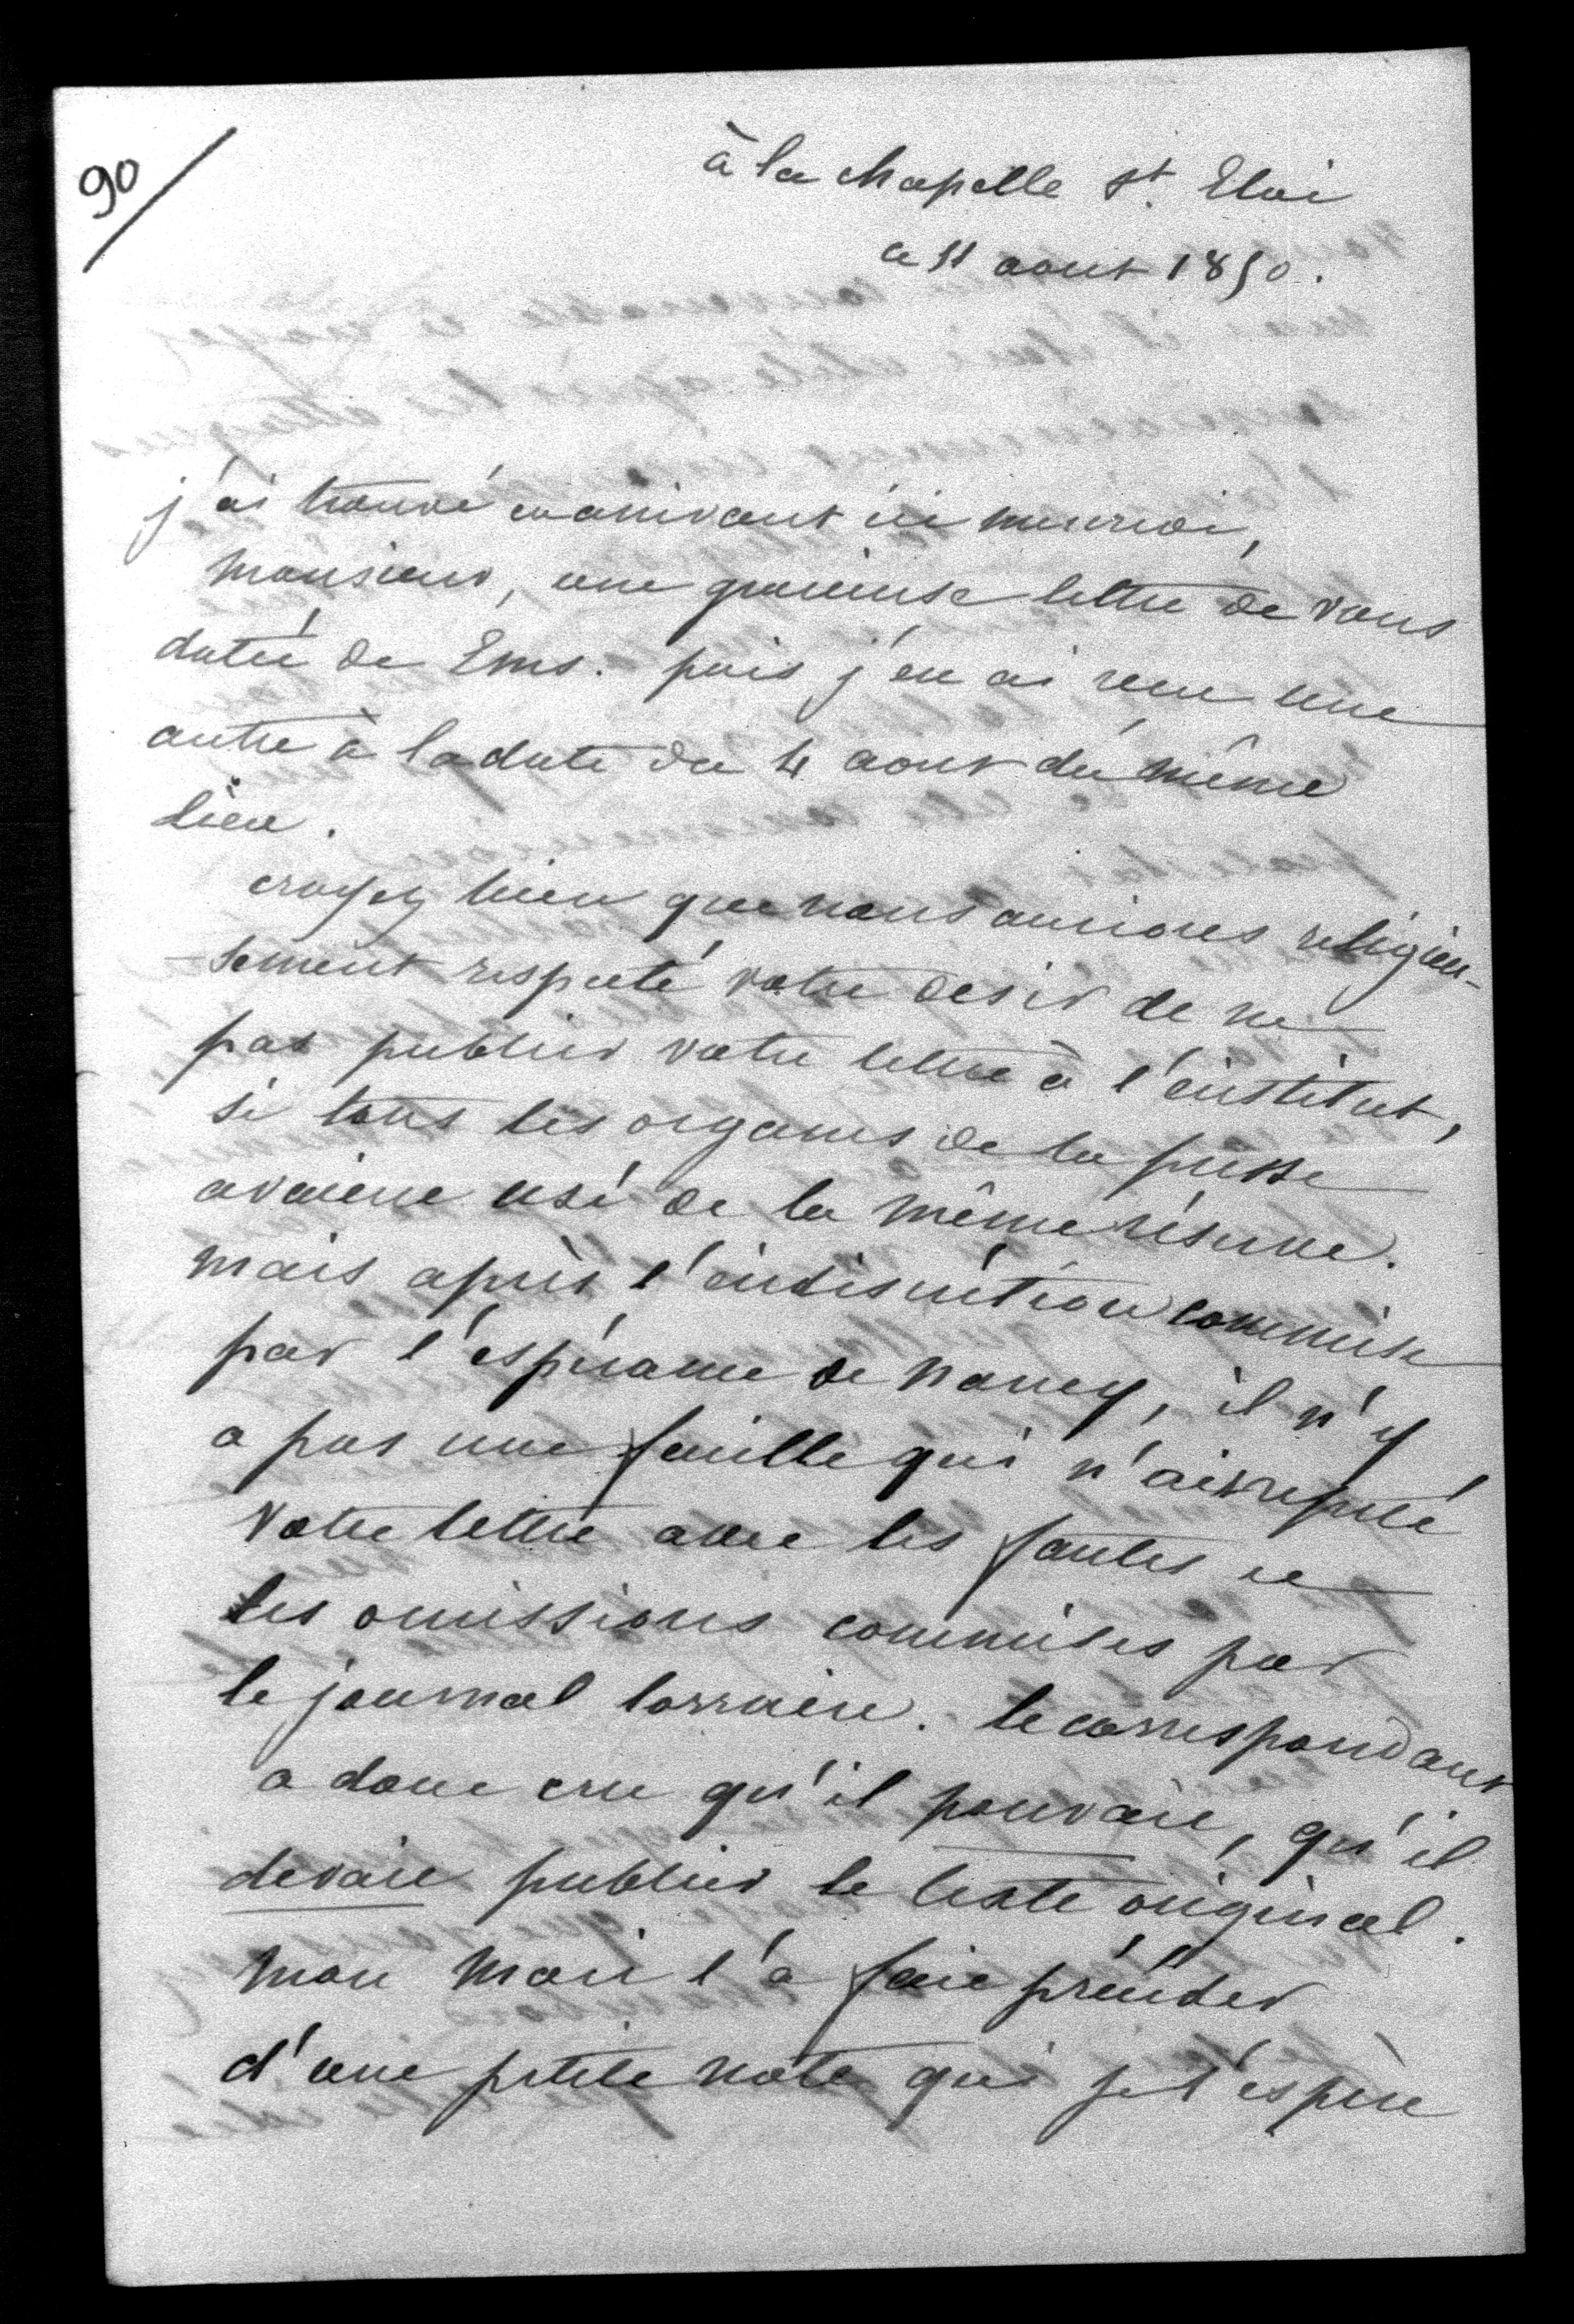 90
à la chapelle St. Eloi
ce 11 aout 1850.
j'ai trouvé en arrivant ici mercredi,
monsieur, une gracieuse lettre de vous
datée de Ems. puis j'en ai recu une
autre à la date du 4 aout du même
lieu.
croyez bien que nous aurions religieu-
sement respecté votre desir de ne
pas publier votre lettre à l'institut,
si tous les organes de la presse
avaient usé de la même réserve.
mais après l'indiscrétion commise
par l'espérance de nancy, il n'y
a pas une feuille qui n'ait repété
votre lettre avec les fautes et
les omissions commises par
le journal lorrain. le correspondant
a donc cru qu'il pouvait, qu'il
devait publier le texte original.
mon mari l'a fait précéder
d'une petite note qui je l'espère